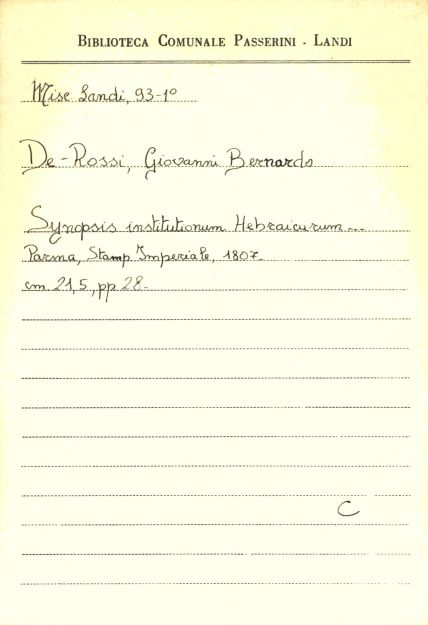 BIBLIOTECA COMUNALE PASSERINI - LANDI
Misc Landi, 93-1º
De-Rossi, Giovanni Bernardo
Synopsis institutionum Hebraicarum...
Parma, Stamp. Imperiale, 1807-
cm. 21,5, pp 28-
C